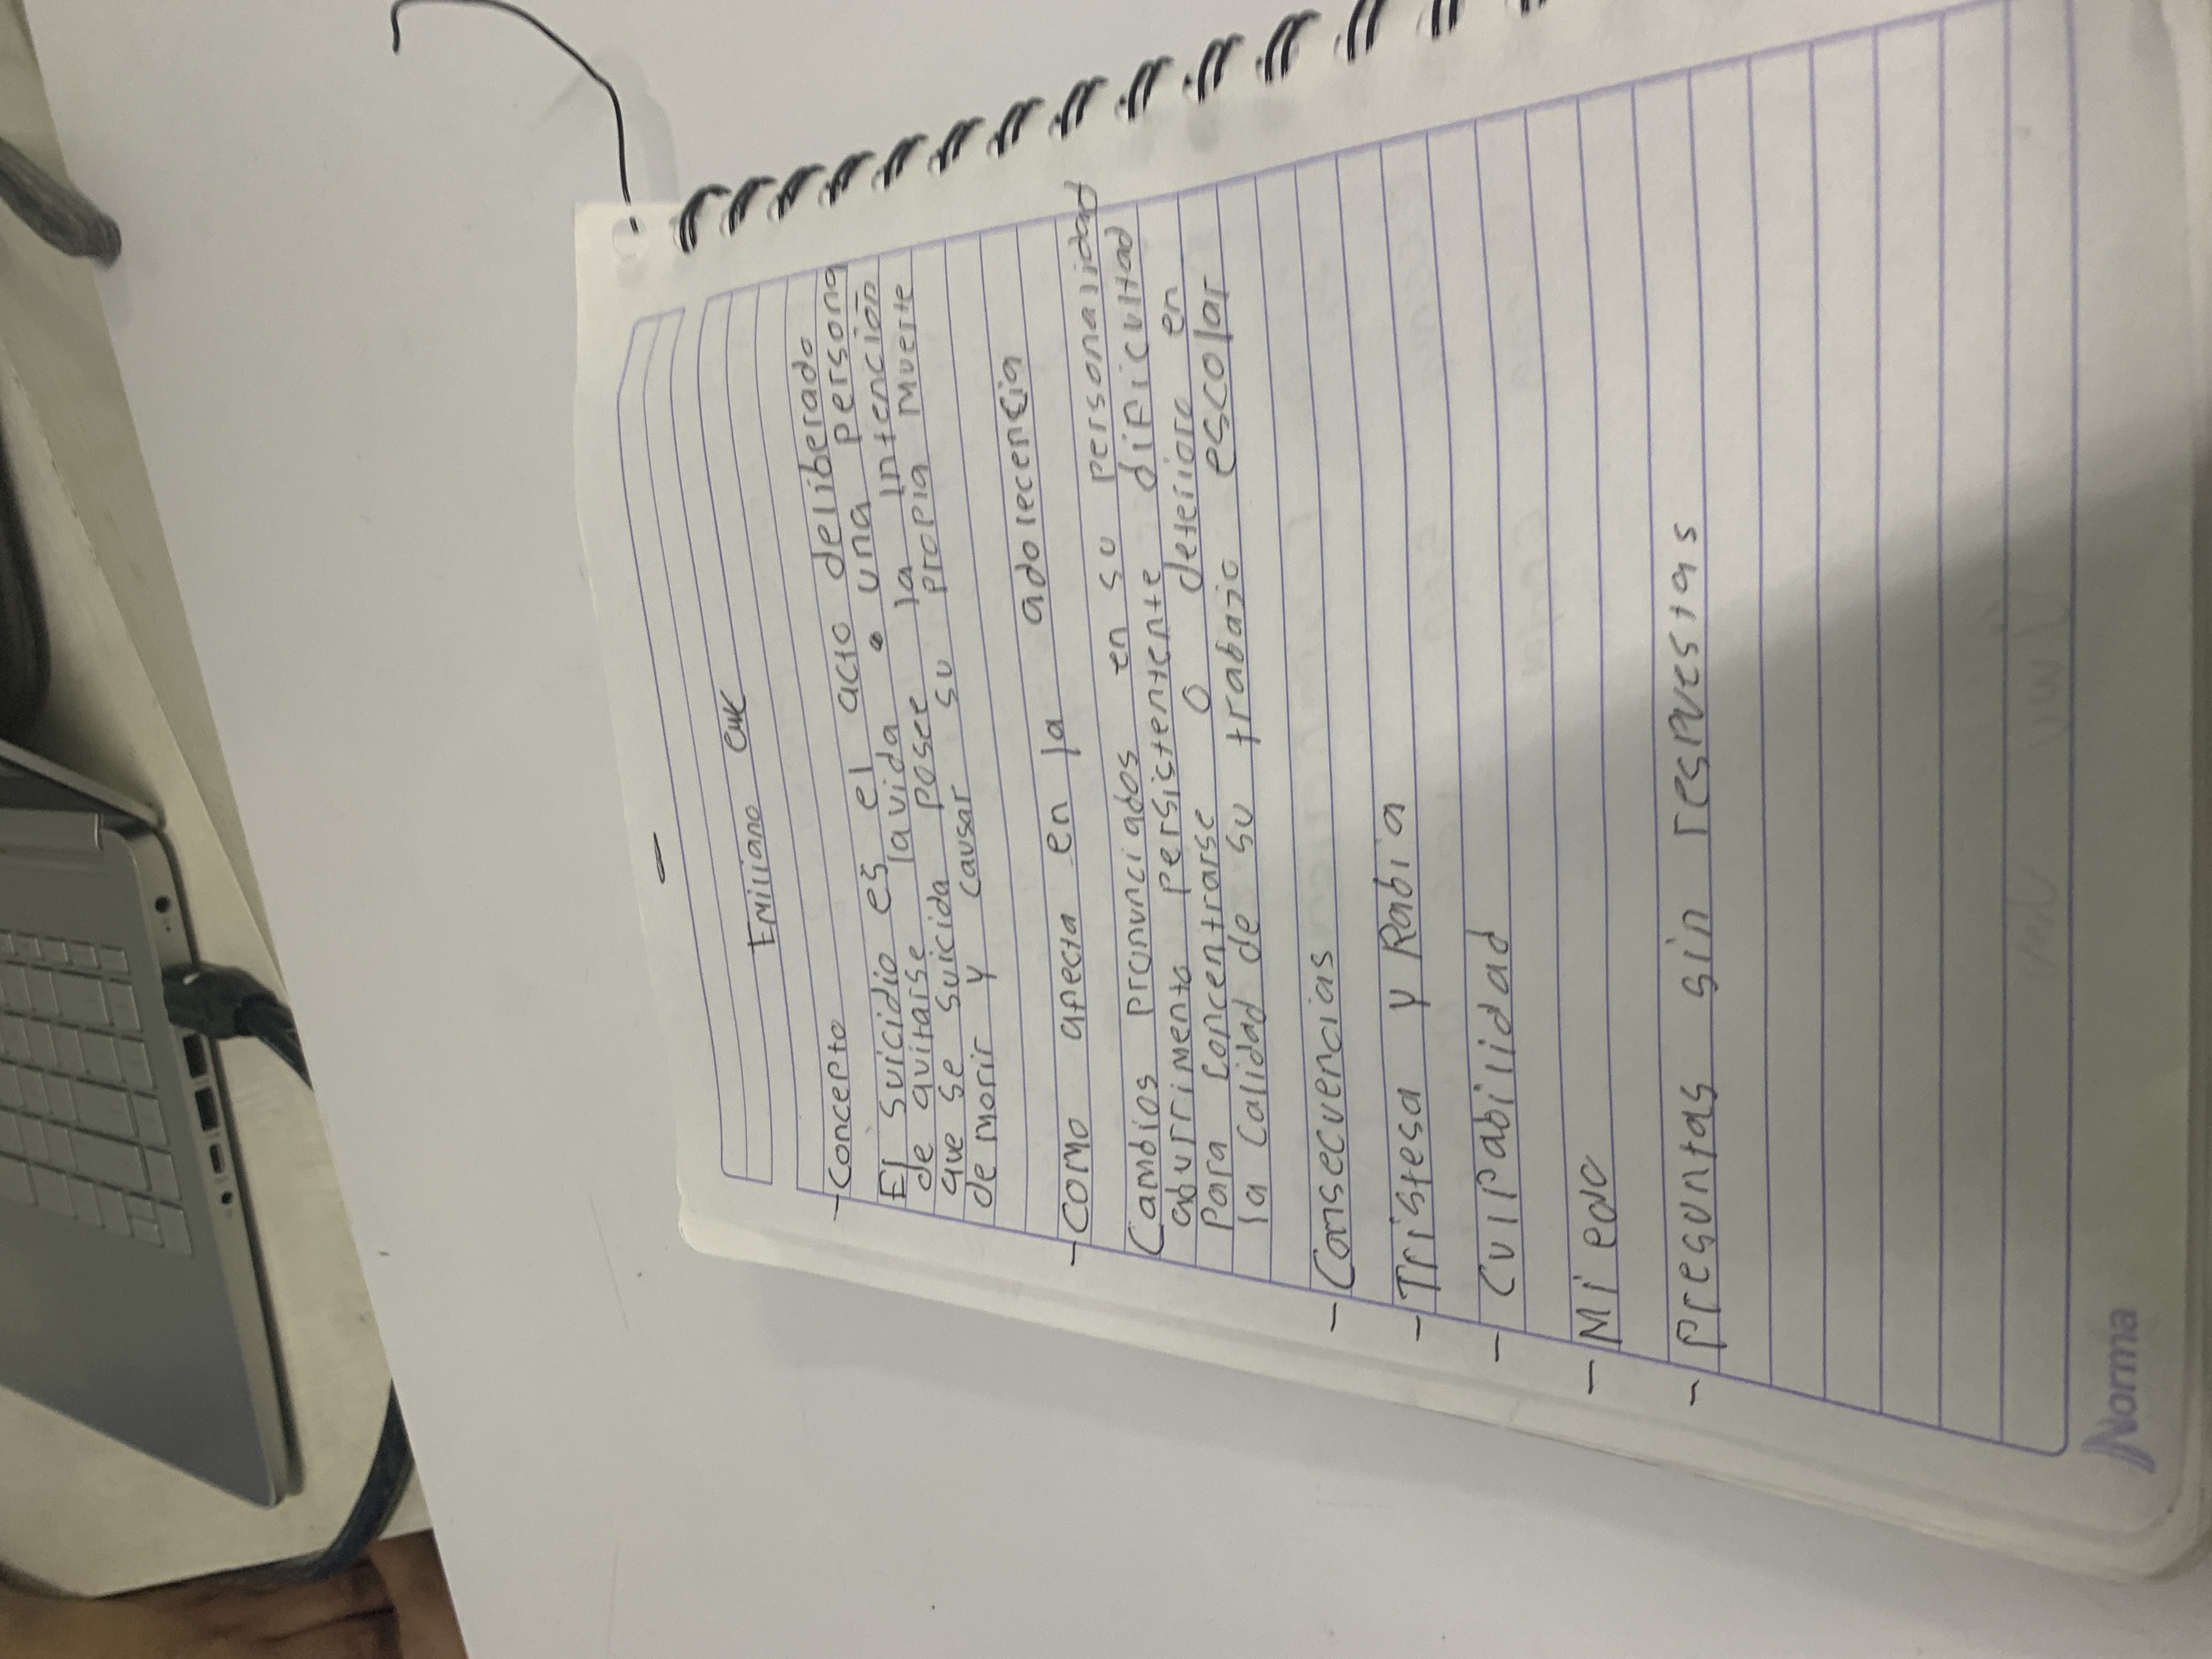 Emiliano
- Concepto
El suicidio es el acto deliberado
de quitarse la vida • una persona
que se suicida posee la intención
de morir y causar su propia muerte
- Como afecta en la adolecencia
Cambios pronunciados en su personalidad
aburrimento persistentente dificultad
para concentrarse o deterioro en
la calidad de su trabajo escolar
- Consecuencias
- Tristesa y Rabia
- Culpabilidad
- Miedo
- Preguntas sin respuestas
Norma